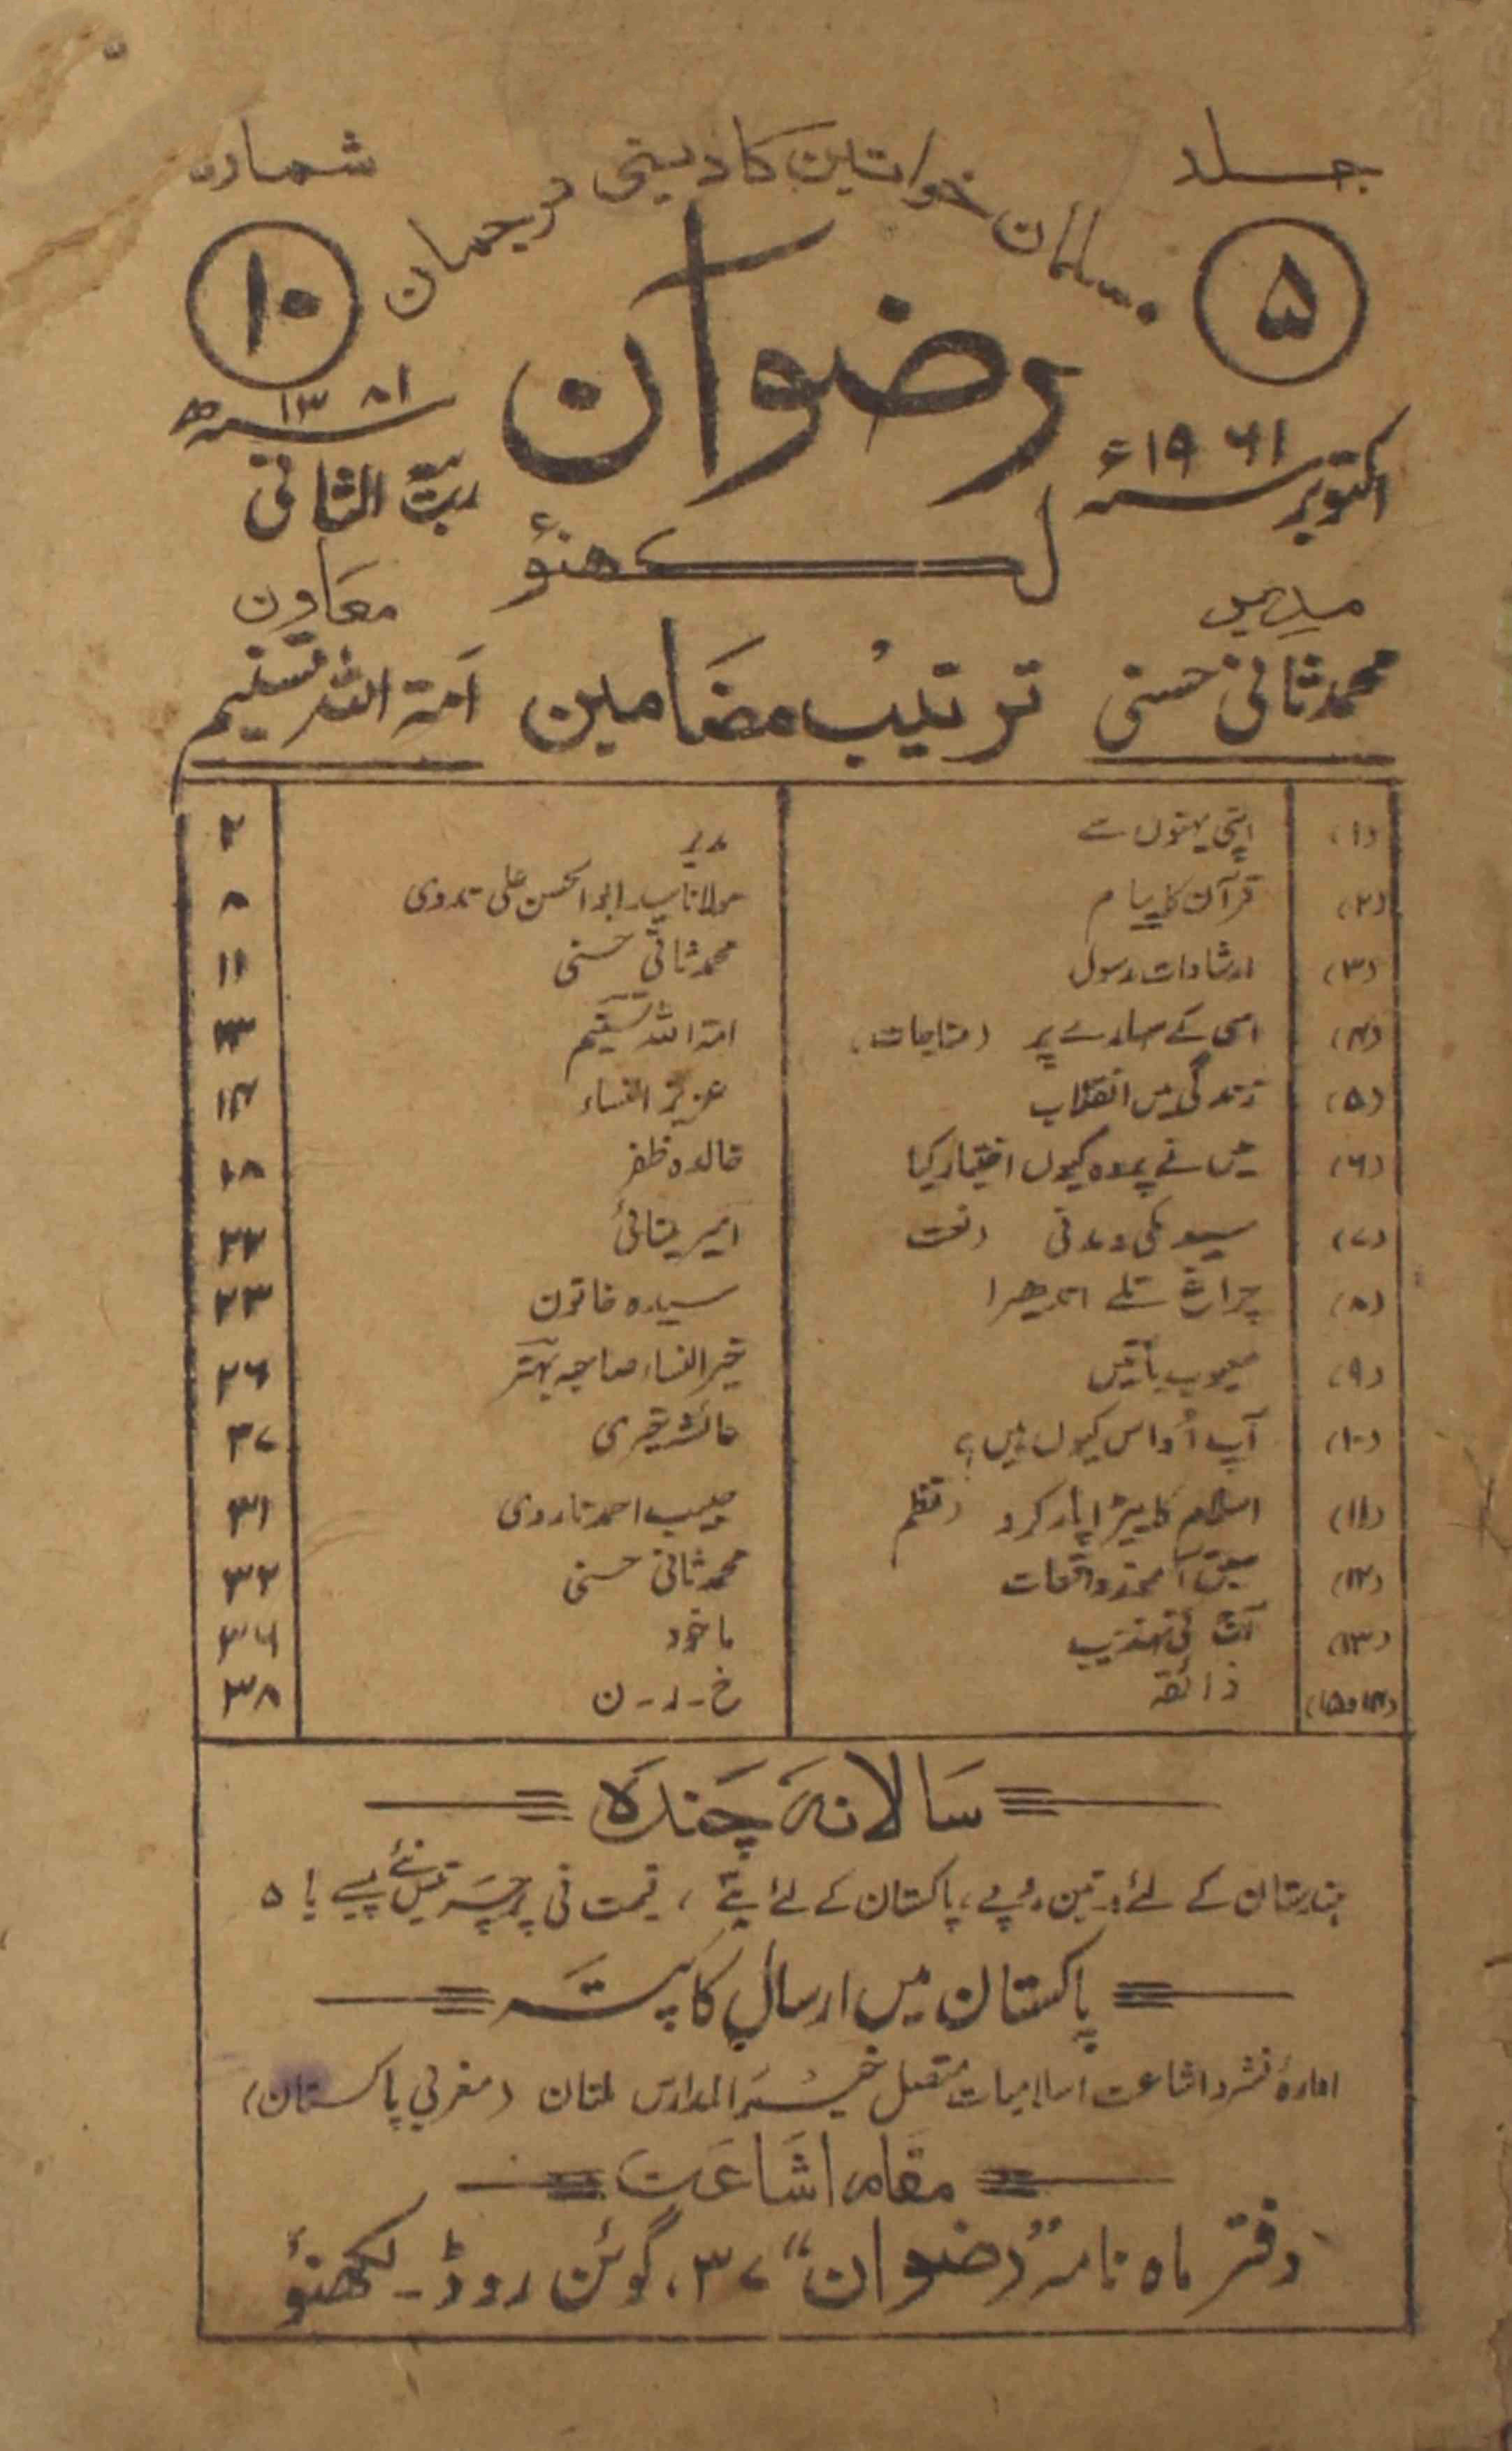 جلد ۵
مسلمان خواتین کا دینی ترجمان
شمارہ ۱۰
رضوان
لکھنؤ
اکتوبر ۱۹۶۱ء
۱۳۸۱ھ
الثانی
مدیر
محمد ثانی حسنی
معاون
امۃ اللہ تسنیم
ترتیب مضامین
(۱) اپنی بہنوں سے مدیر ۲
(۲) قرآن کا پیام مولانا سید ابوالحسن علی ندوی ۸
(۳) ارشادات رسول محمد ثانی حسنی ۱۱
(۴) اسی کے سہارے پر (مناجات) امۃ اللہ تسنیم ۱۳
(۵) زندگی میں انقلاب عزیز النساء ۱۴
(۶) میں نے پردہ کیوں اختیار کیا خالدہ ظفر ۱۸
(۷) سید مکی و مدنی (نعت امیر مینائی ۲۲
(۸) چراغ تلے اندھیرا سیدہ خاتون ۲۳
(۹) معیوب باتیں خیر النساء صاحبہ بہتر ۲۶
(۱۰) آپ اُداس کیوں ہیں؟ عائشہ ۲۷
(۱۱) اسلام کا بیڑا پار کرد (نظم حبیب احمد ۳۱
(۱۲) سبق آموز واقعات محمد ثانی حسنی ۳۲
(۱۳) تہذیب ماخوذ ۳۶
(۱۴و۱۵) ذائقہ خ۔ر۔ن ۳۸
سالانہ چندہ
ہندوستان کے لئے تین روپے، پاکستان کے لئے، قیمت فی پرچہ نئے پیسے
پاکستان میں ارسال کا پتہ
ادارۂ نشر و اشاعت اسلامیات متصل خیر المدارس ملتان (مغربی پاکستان)
مقام اشاعت
دفتر ماہ نامہ "رضوان" ۳۷، گوئن روڈ۔ لکھنؤ